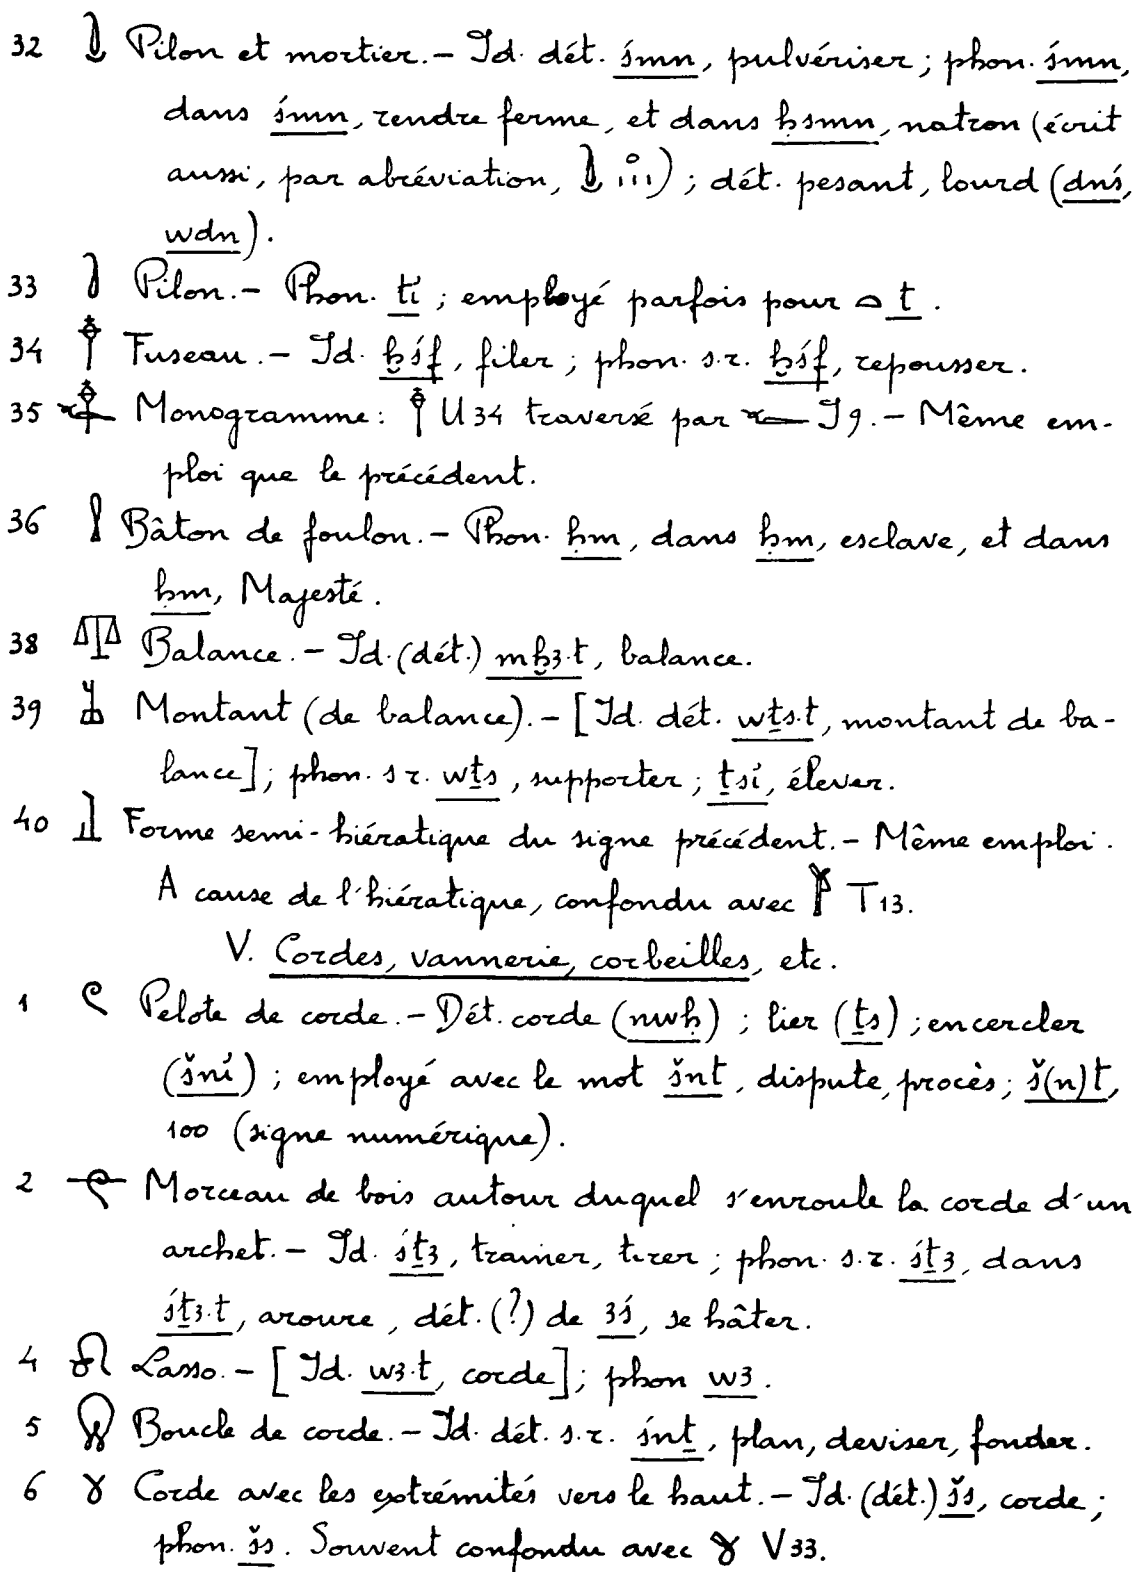 32 𓍋 Pilon et mortier. – Id. dét. śmn, pulvériser ; phon. śmn,
dans śmn, rendre ferme, et dans ḥsmn, natron (écrit
aussi, par abréviation, 𓍋 𓈒𓏥) ; dét. pesant, lourd (dnś,
wdn).
33 𓍘 Pilon. – Phon. tỉ ; employé parfois pour 𓏏 t.
34 𓍝 Fuseau. – Id. ḫśf, filer ; phon. s.r. ḫśf, repousser.
35 𓍞 Monogramme : 𓍝 U34 traversé par 𓆑 I9. – Même em-
ploi que le précédent.
36 𓍛 Bâton de foulon. – Phon. ḥm, dans ḥm, esclave, et dans
ḥm, Majesté.
38 𓍝 Balance. – Id. (dét.) mḫ3.t, balance.
39 𓍞 Montant (de balance). – [Id. dét. wṯs.t, montant de ba-
lance] ; phon. s r. wṯs, supporter ; ṯsỉ, élever.
40 𓍟 Forme semi-hiératique du signe précédent. – Même emploi.
A cause de l'hiératique, confondu avec 𓌟 T13.
V. Cordes, vannerie, corbeilles, etc.
1 𓍢 Pelote de corde. – Dét. corde (nwḥ) ; lier (ṯs) ; encercler
(šnỉ) ; employé avec le mot šnt, dispute, procès ; š(n)t,
100 (signe numérique).
2 𓍱 Morceau de bois autour duquel s'enroule la corde d'un
archet. – Id. śṯ3, trainer, tirer ; phon. s.r. śṯ3, dans
śṯ3.t, aroure, dét. (?) de 3ś, se hâter.
4 𓍯 Lasso. – [Id. w3.t, corde] ; phon w3.
5 𓍰 Boucle de corde. – Id. dét. s.r. śnṯ, plan, deviser, fonder.
6 𓍱 Corde avec les extrémités vers le haut. – Id. (dét.) šs, corde ;
phon. šs. Souvent confondu avec 𓎛 V33.